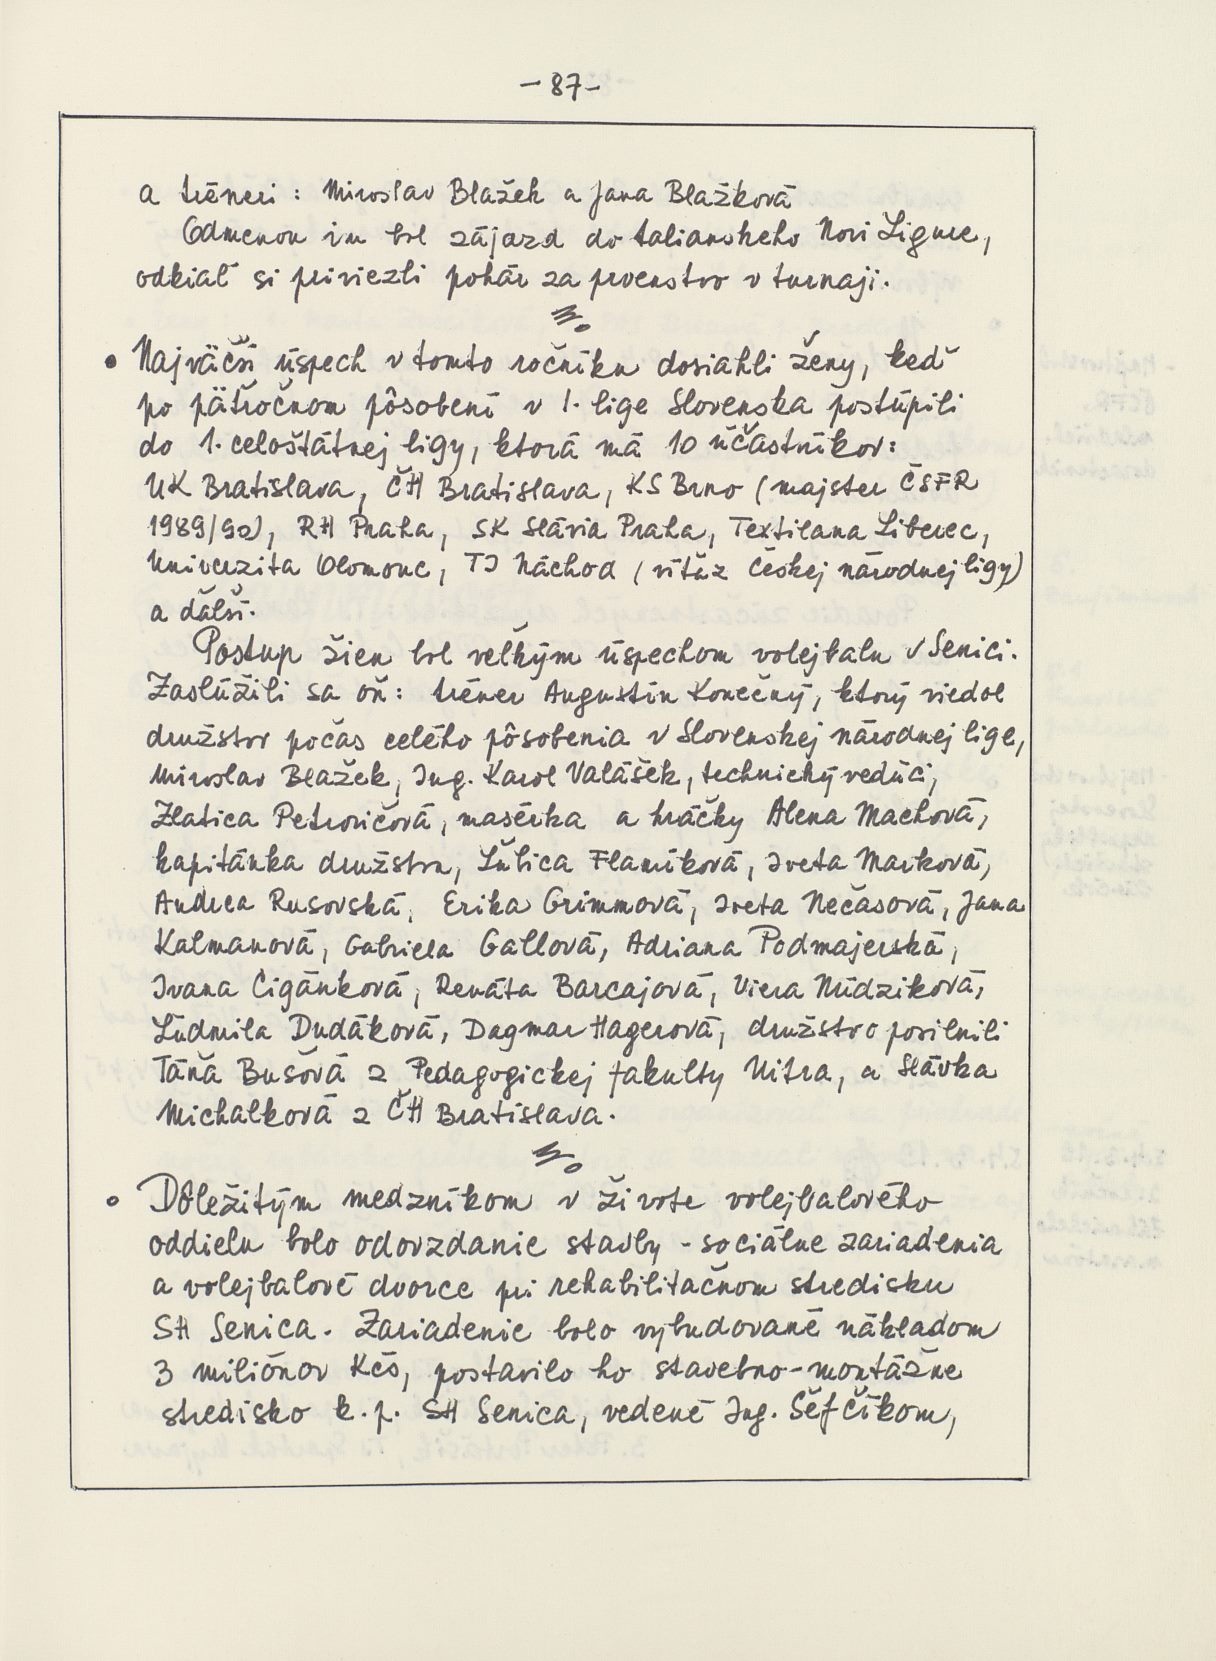 - 87 -
a tréneri : Miroslav Blažek a Jana Blažková
Odmenou im bol zájazd do talianskeho Novi Ligure,
odkiaľ si priviezli pohár za prvenstvo v turnaji.
• Najväčší úspech v tomto ročníku dosiahli ženy, keď
po päťročnom pôsobení v 1. lige Slovenska postúpili
do 1. celoštátnej ligy, ktorá má 10 účastníkov:
UK Bratislava, ČH Bratislava, KS Brno (majster ČSFR
1989/90), RH Praha, SK Slávia Praha, Textilana Liberec,
Univerzita Olomouc, TJ Náchod (víťaz Českej národnej ligy)
a ďalší.
Postup žien bol veľkým úspechom volejbalu v Senici.
Zaslúžili sa oň: tréner Augustín Konečný, ktorý viedol
družstvo počas celého pôsobenia v Slovenskej národnej lige,
Miroslav Blažek, Ing. Karol Valášek, technický vedúci,
Zlatica Petrovičová, masérka a hráčky Alena Machová,
kapitánka družstva, Ľubica Flamíková, Iveta Marková,
Andrea Rusovská, Erika Grimmová, Iveta Nečasová, Jana
Kalmanová, Gabriela Gallová, Adriana Podmajerská,
Ivana Cigánková, Renáta Barcajová, Viera Núdziková,
Ľudmila Dudáková, Dagmar Hagerová, družstvo posilnili
Táňa Bušová z Pedagogickej fakulty Nitra, a Slávka
Michalková z ČH Bratislava.
• Dôležitým medzníkom v živote volejbalového
oddielu bolo odovzdanie stavby - sociálne zariadenia
a volejbalové dvorce pri rehabilitačnom stredisku
SH Senica. Zariadenie bolo vybudované nákladom
3 miliónov Kčs, postavilo ho stavebno-montážne
stredisko k.p. SH Senica, vedené Ing. Šefčíkom,